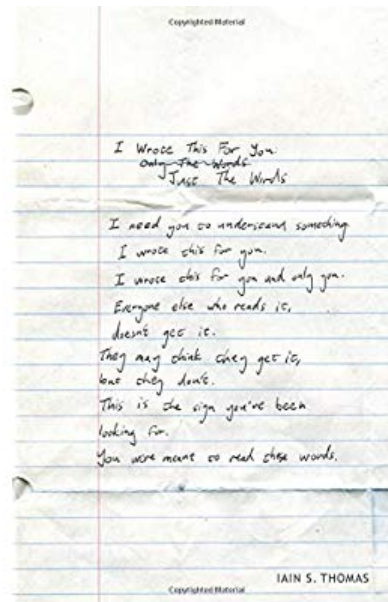 Copyrighted Material
I Wrote This For You.
Only The Words
Just The Words
I need you to understand something.
I wrote this for you.
I wrote this for you and only you.
Everyone else who reads it,
doesn't get it.
They may think they get it,
but they don't.
This is the sign you've been
looking for.
You were meant to read these words.
IAIN S. THOMAS
Copyrighted Material